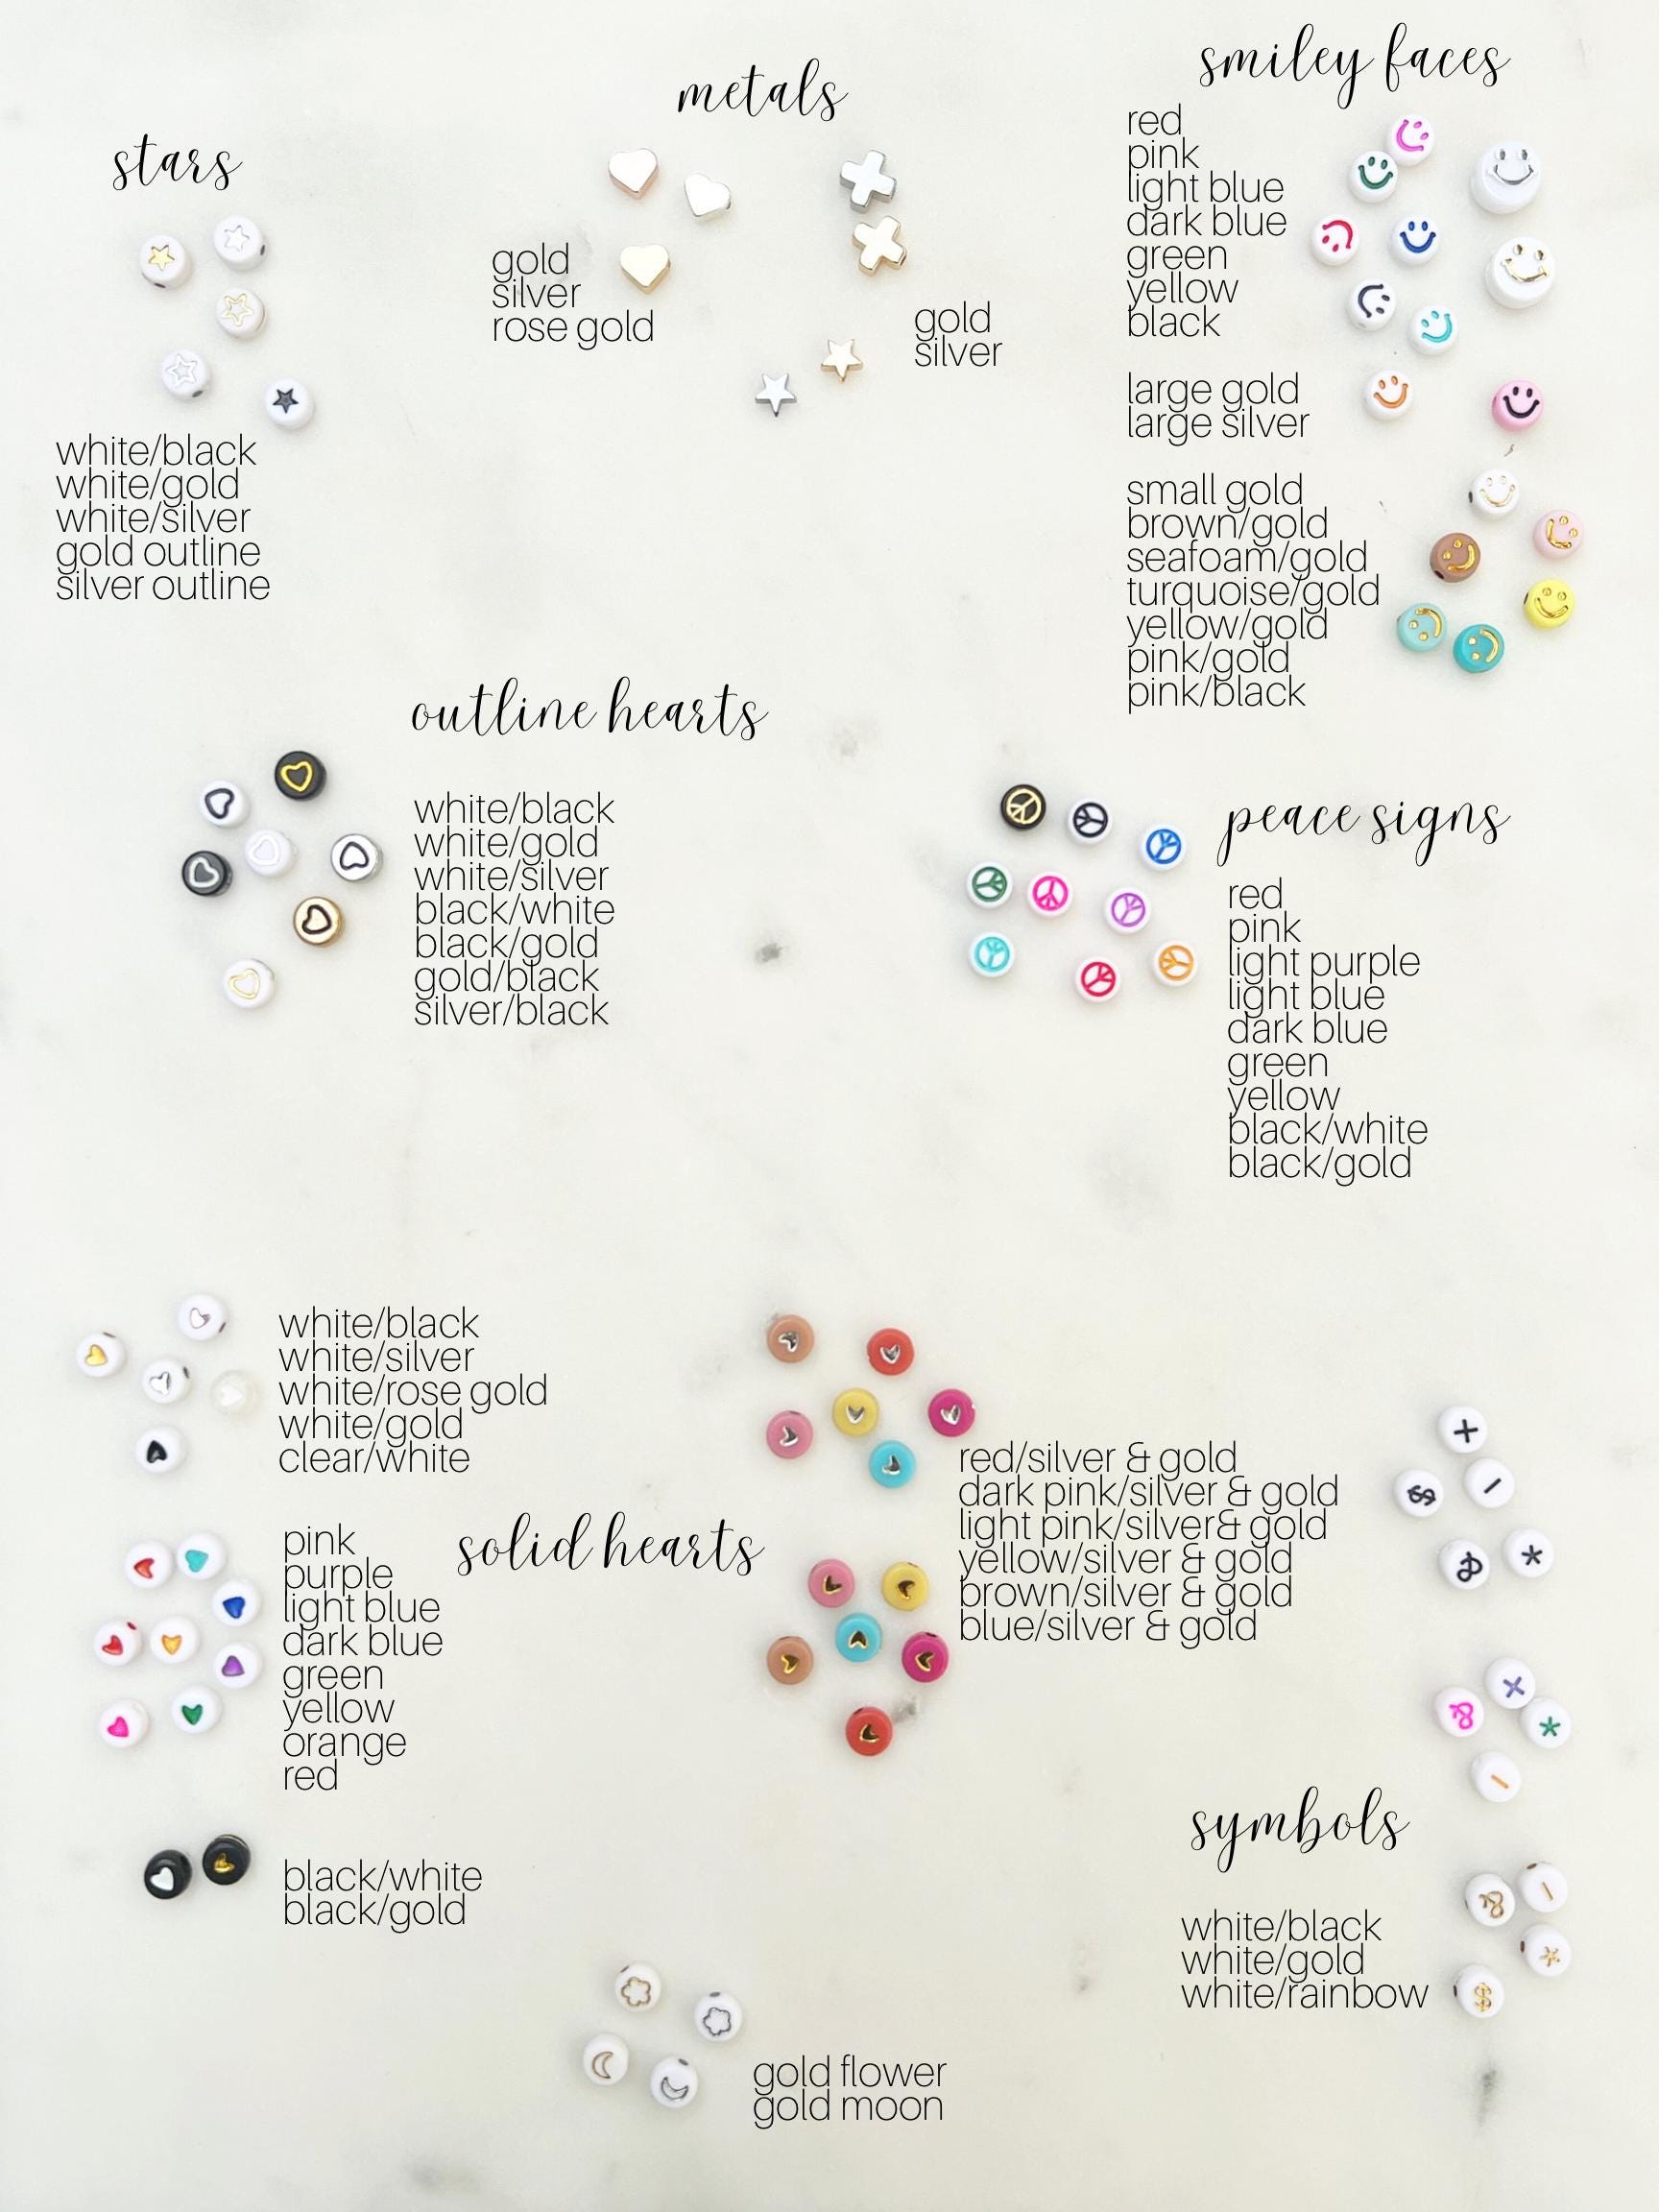 smiley faces
red
pink
light blue
dark blue
green
yellow
black
large gold
large silver
small gold
brown/gold
seafoam/gold
turquoise/gold
yellow/gold
pink/gold
pink/black
metals
gold
silver
rose gold
gold
silver
stars
white/black
white/gold
white/silver
gold outline
silver outline
outline hearts
white/black
white/gold
white/silver
black/white
black/gold
gold/black
silver/black
peace signs
red
pink
light purple
light blue
dark blue
green
yellow
black/white
black/gold
white/black
white/silver
white/rose gold
white/gold
clear/white
solid hearts
pink
purple
light blue
dark blue
green
yellow
orange
red
black/white
black/gold
red/silver & gold
dark pink/silver & gold
light pink/silver& gold
yellow/silver & gold
brown/silver & gold
blue/silver & gold
+
$
-
&
*
&
+
*
-
symbols
white/black
white/gold
white/rainbow
&
-
*
$
gold flower
gold moon